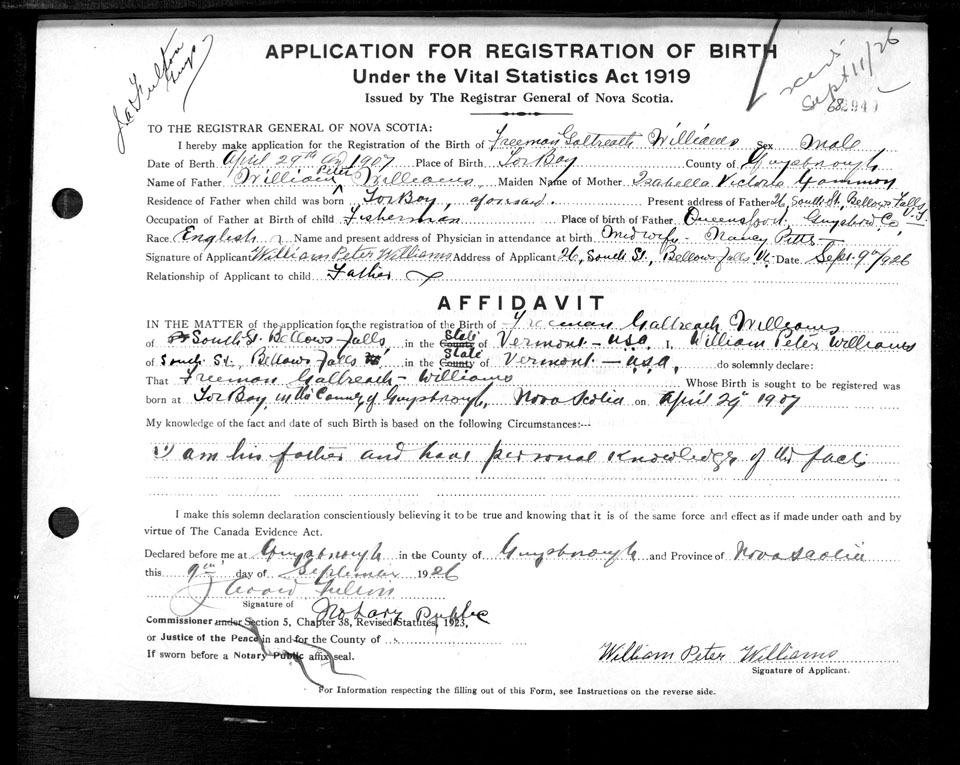 J.A. Fulton
Guys
APPLICATION FOR REGISTRATION OF BIRTH
Under the Vital Statistics Act 1919
Issued by The Registrar General of Nova Scotia.
Sept 11/26
TO THE REGISTRAR GENERAL OF NOVA SCOTIA:
I hereby make application for the Registration of the Birth of Freeman Galbreath Williams Sex Male
Date of Birth April 29th 1907 Place of Birth Tor Bay County of Guysborough
Name of Father William Peter Williams, Maiden Name of Mother Isabella Victoria
Residence of Father when child was born Tor Bay, aforesaid. Present address of Father 26, South St, Bellows Falls, Vt.
Occupation of Father at Birth of child Fisherman Place of birth of Father Queensport, Guysboro Co,
Race English Name and present address of Physician in attendance at birth Midwife Nancy
Signature of Applicant William Peter Williams Address of Applicant 26, South St., Bellows Falls, Vt. Date Sept. 9th 1926
Relationship of Applicant to child Father
AFFIDAVIT
IN THE MATTER of the application for the registration of the Birth of Freeman Galbreath Williams
of South St. Bellows Falls in the County State of Vermont - USA I, William Peter Williams
of South St., Bellows Falls in the County State of Vermont - USA, do solemnly declare:
That Freeman Galbreath Williams Whose Birth is sought to be registered was
born at Tor Bay, in the County of Guysborough, Nova Scotia on April 29th 1907
My knowledge of the fact and date of such Birth is based on the following Circumstances:--
I am his father and have personal knowledge of the facts
I make this solemn declaration conscientiously believing it to be true and knowing that it is of the same force and effect as if made under oath and by
virtue of The Canada Evidence Act.
Declared before me at Guysborough in the County of Guysborough and Province of Nova Scotia
this 9th day of September 1926
Signature of Notary Public
Commissioner under Section 5, Chapter 38, Revised Statutes, 1923,
or Justice of the Peace in and for the County of
If sworn before a Notary Public affix seal.
William Peter Williams
Signature of Applicant.
For Information respecting the filling out of this Form, see Instructions on the reverse side.